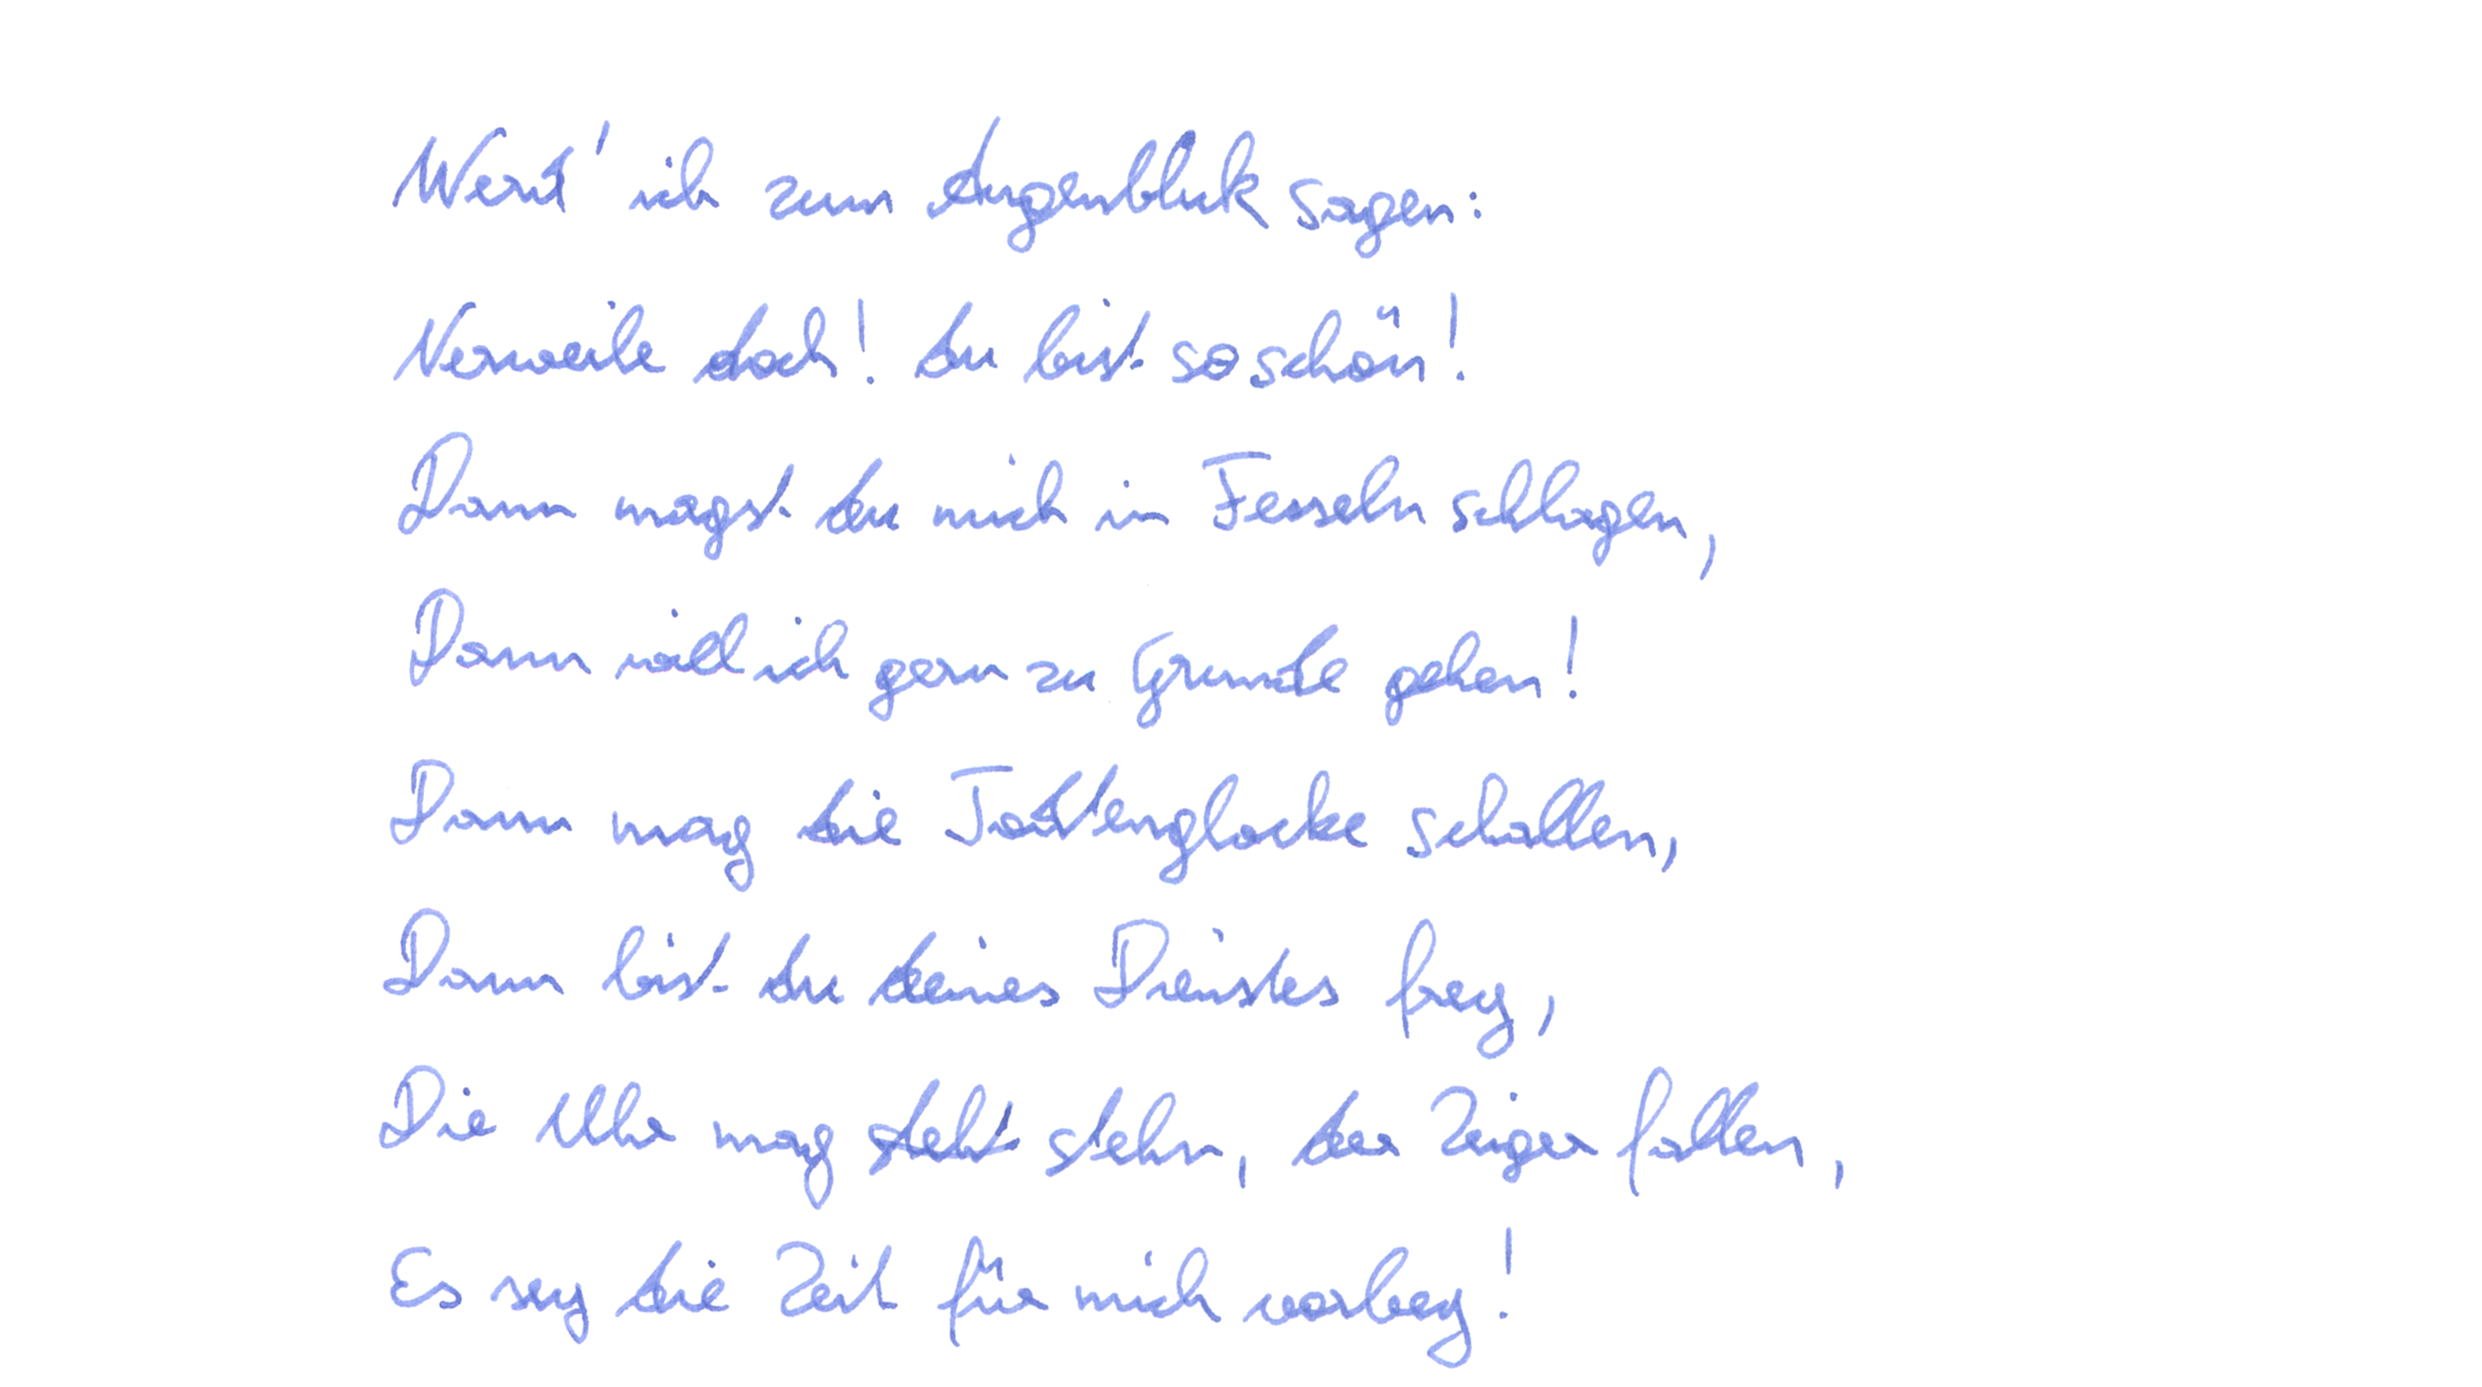 Werd' ich zum Augenblick sagen:
Verweile doch! du bist so schön!
Dann magst du mich in Fesseln schlagen,
Dann will ich gern zu Grunde gehen!
Dann mag die Todtenglocke schallen,
Dann bist du deines Dienstes frey,
Die Uhr mag steht stehn, der Zeiger fallen,
Es sey die Zeit für mich vorbey!